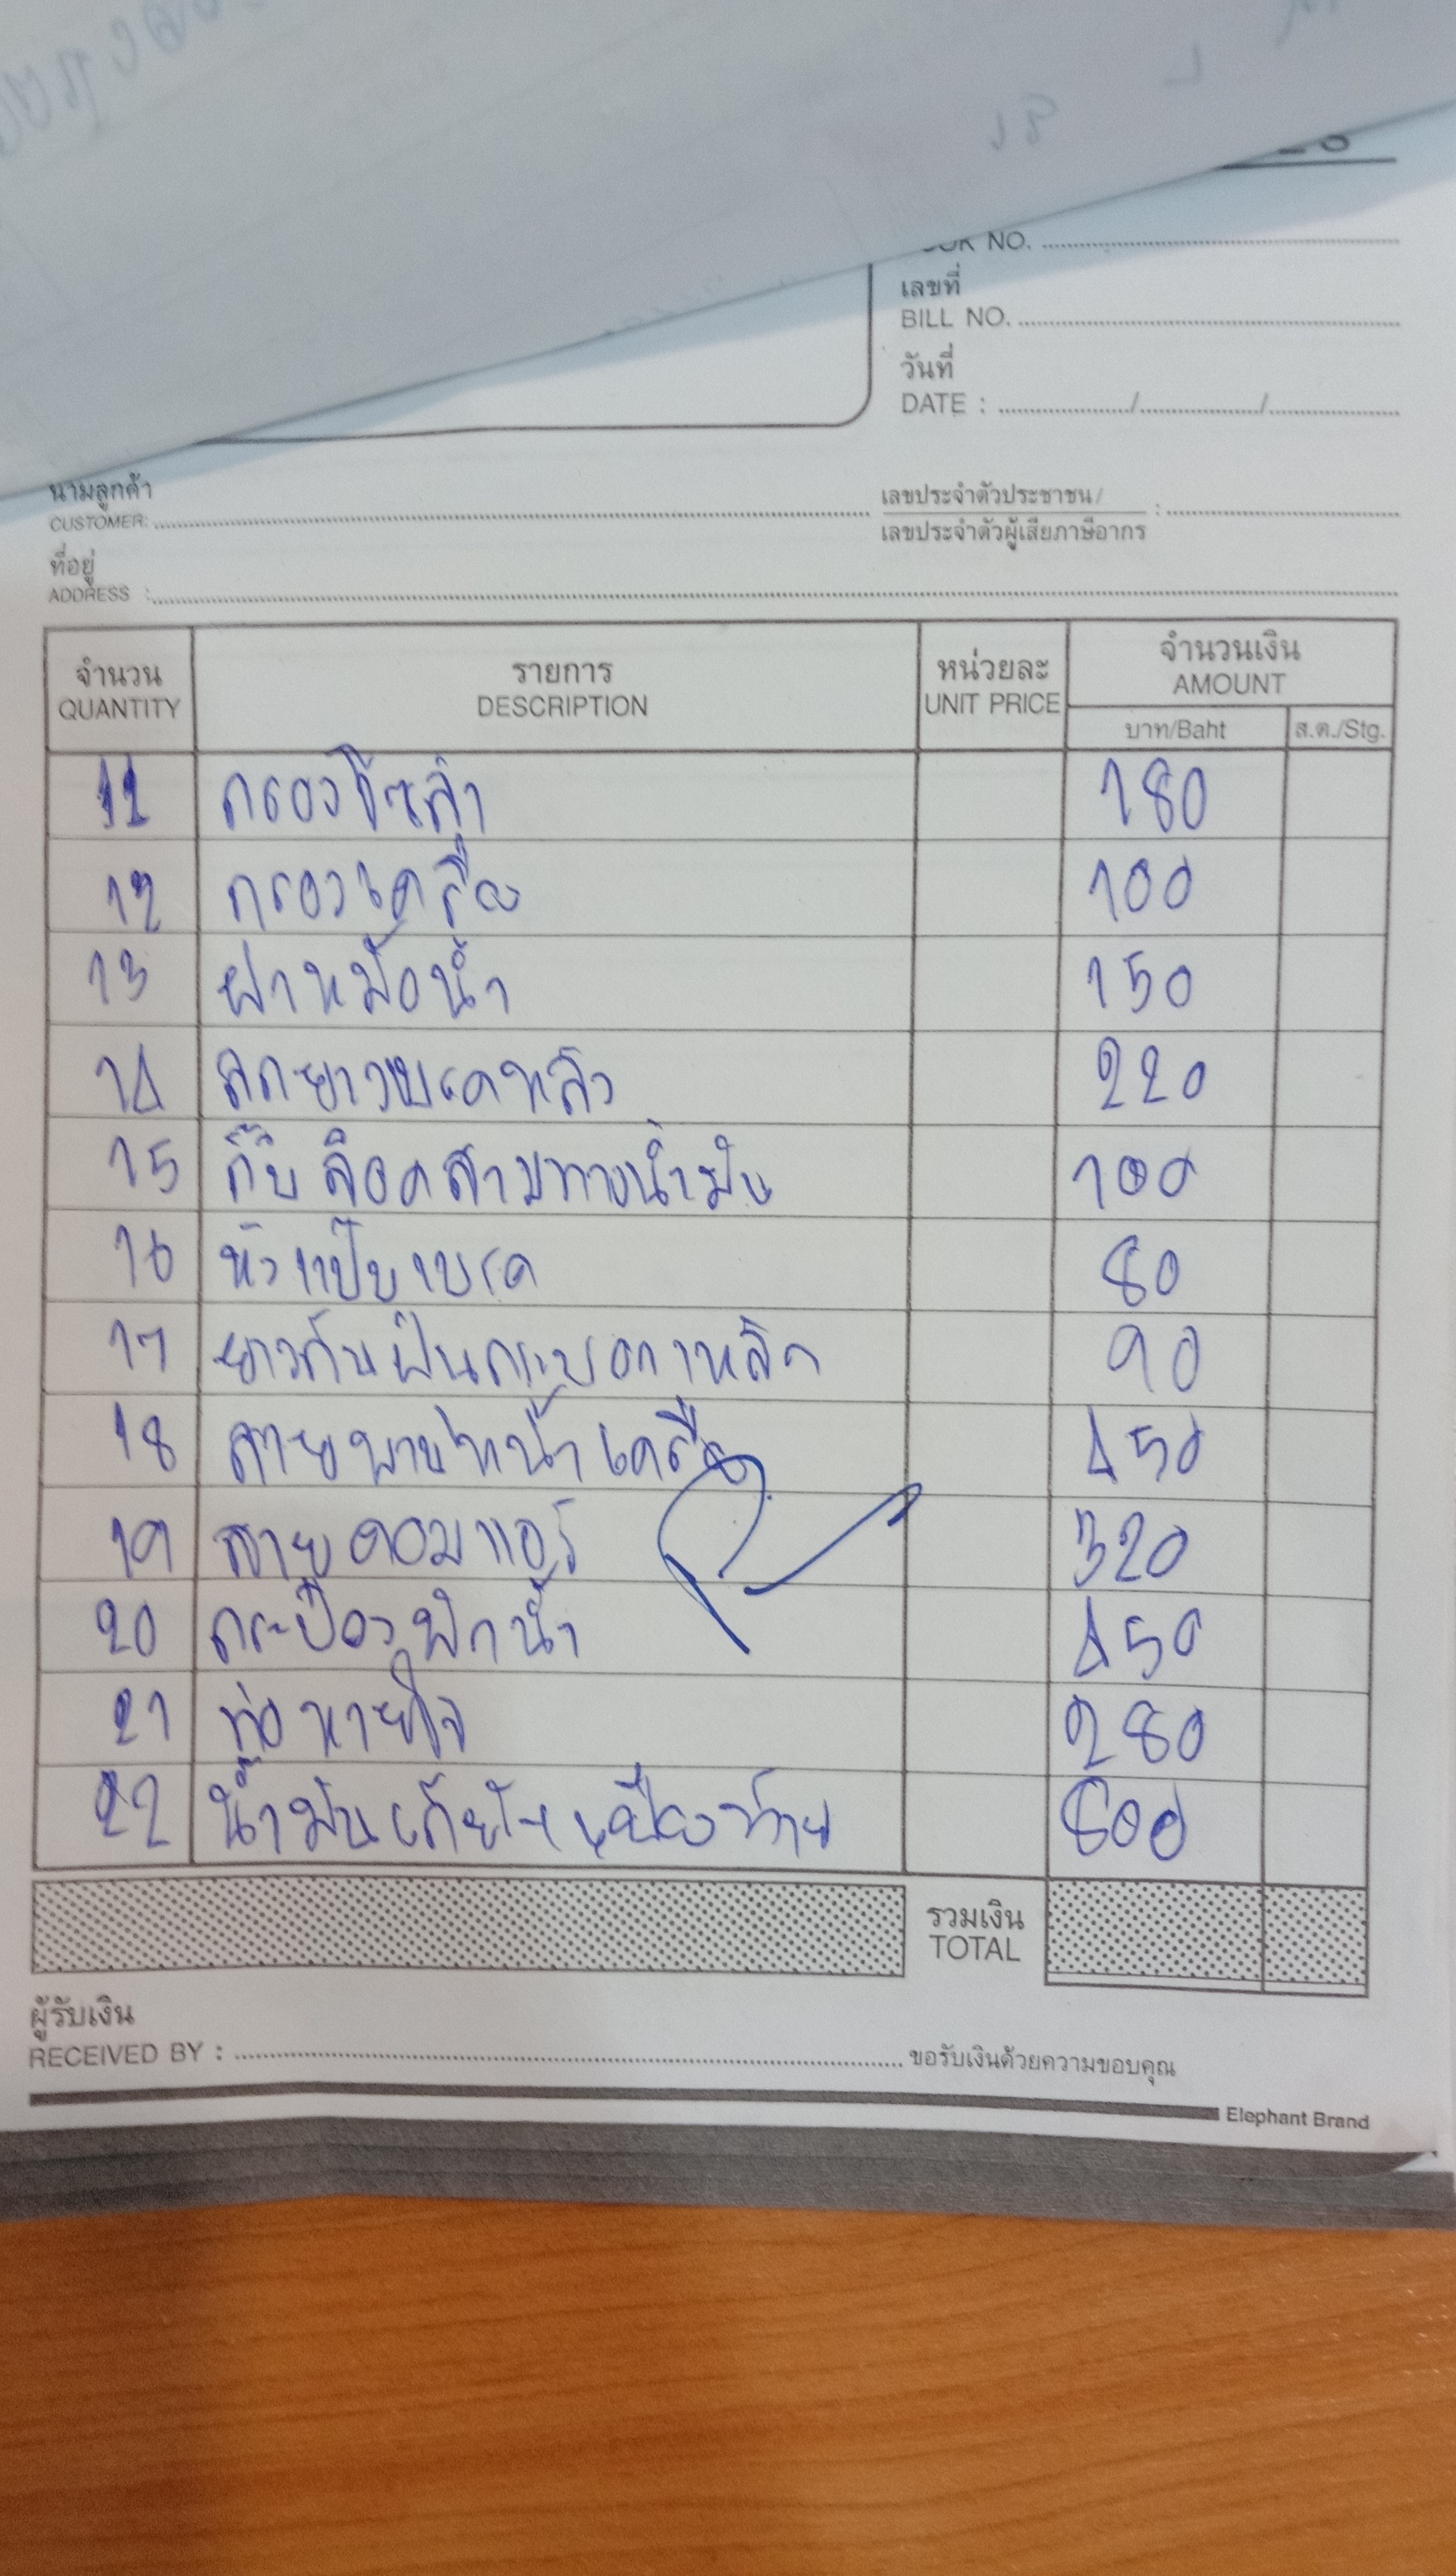 BOOK NO.
เลขที่
BILL NO.
วันที่
DATE : / /
นามลูกค้า
CUSTOMER:
เลขประจำตัวประชาชน/
เลขประจำตัวผู้เสียภาษีอากร :
ที่อยู่
ADDRESS :
จำนวน รายการ หน่วยละ จำนวนเงิน
QUANTITY DESCRIPTION UNIT PRICE AMOUNT
บาท/Baht ส.ต./Stg.
11 กรอง 180
12 กรองเครื่อง 100
13 ฝาหม้อน้ำ 150
14 ลูกยางเบรคหลัง 220
15 กิ๊บล๊อคสามทางน้ำมัน 100
16 หัวแป๊บเบรค 80
17 ยางกันฝุ่นกระบอกเหล็ก 90
18 สายพานหน้าเครื่อง 450
19 สายคอมแอร์ 320
20 กระป๋องพักน้ำ 450
21 ท่อหายใจ 280
22 น้ำมันเกียร์+เฟืองท้าย 800
รวมเงิน
TOTAL
ผู้รับเงิน
RECEIVED BY : ขอรับเงินด้วยความขอบคุณ
Elephant Brand